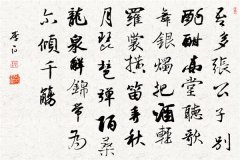 吾多張公子別
酌酣高堂聽歌
舞銀燭把酒輕
羅裳橫笛弄秋
月琵琶彈陌桑
龍泉解錦帶為
尔傾千觴